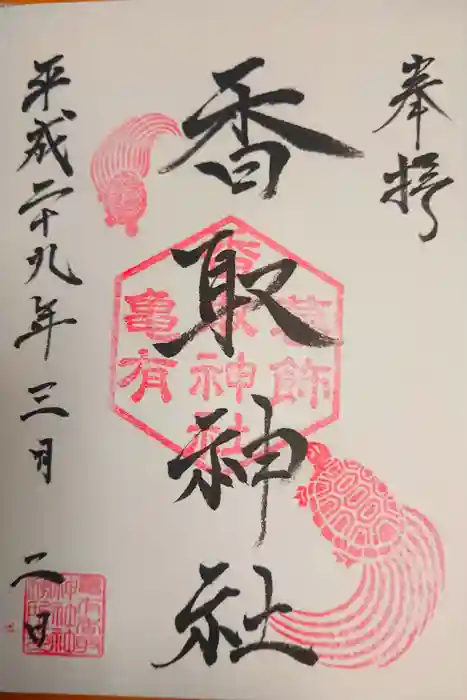 奉拝
香取神社
葛飾
香取神社
亀有
平成二十九年三月二日